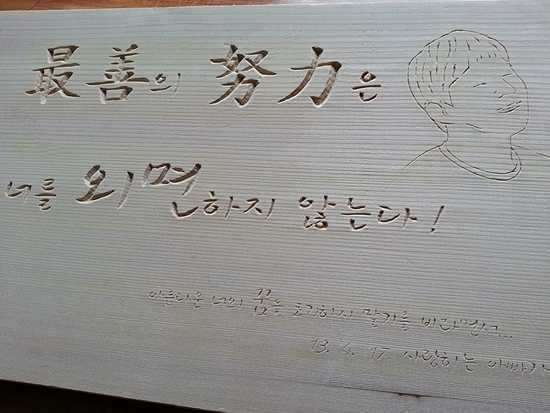 最善의 努力은
너를 외면하지 않는다!
아름다운 너의 꿈을 포기하지 말기를 바라면서...
13. 4. 17 사랑하는 아빠가